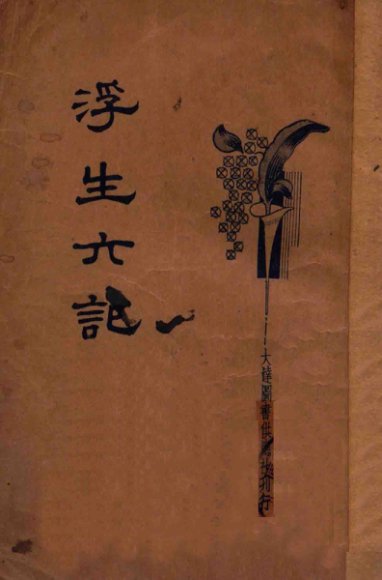 浮生六記
大達圖書供應社刊行